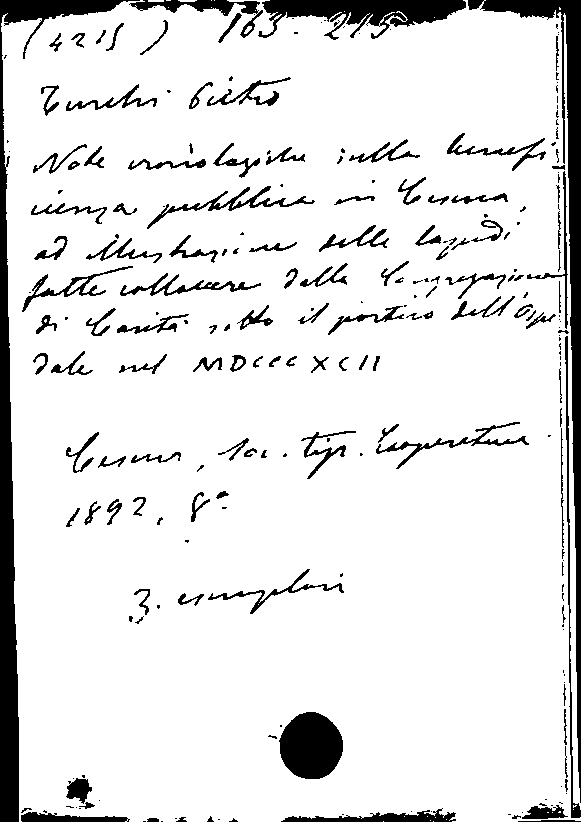 (4215) 163. 215
Turchi Pietro
Note cronologiche sulla benefi
cienza pubblica in Cesena,
ad illustrazione delle lapidi
fatte collocare dalla Congregazione
di Carità sotto il portico dell'Ospe
dale nel MDCCCXCII
Cesena, Soc. tip. Cooperativa
1892, 8°
3. esemplari